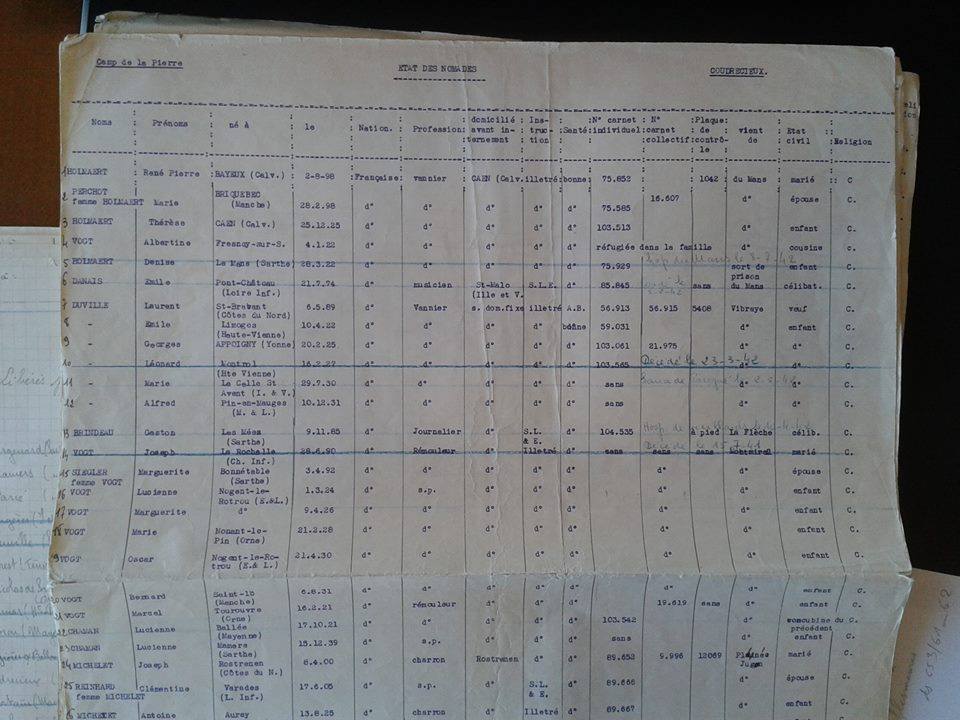 Camp de la Pierre ETAT DES NOMADES COUDRECIEUX.
Noms Prénoms né à le Nation. Profession domicilié avant internement Instruction Santé N° carnet individuel N° carnet collectif Plaque de contrôle vient de Etat civil Religion
1 HOLMAERT René Pierre BAYEUX (Calv.) 2-8-98 Française vannier CAEN (Calv. illetré bonne 75.852 1042 du Mans marié C
2 PERCHOT femme HOLMAERT Marie BRIQUEBEC (Manche) 28.2.98 d° d° d° d° d° 75.585 16.607 d° épouse C.
3 HOLMAERT Thérèse CAEN (Calv.) 25.12.25 d° d° d° d° d° 103.513 d° enfant C.
4 VOGT Albertine Fresnay-sur-S. 4.1.22 d° d° d° d° d° réfugiée dans la famille d° cousine C.
5 HOLMAERT Denise Le Mans (Sarthe) 28.3.22 d° d° d° d° d° 75.929 sort de prison enfant C.
6 DANAIS Emile Pont-Château (Loire Inf.) 21.7.74 d° musicien St-Malo (Ille et V. S.L.E. d° 85.845 sans du Mans célibat. C.
7 DUVILLE Laurent St-Brabant (Côtes du Nord) 6.5.89 d° Vannier s. dom.fixe illetré A.B. 56.913 56.915 5408 Vibraye veuf C.
8 - Emile Limoges (Haute-Vienne) 10.4.22 d° d° d° d° bonne 59.031 d° enfant C.
9 - Georges APPOIGNY (Yonne) 20.2.25 d° d° d° d° d° 103.061 21.975 d° d° C.
10 - Léonard (Hte Vienne) 16.2.27 d° d° d° d° d° 103.565 Décédé le 23-3-42 d° d° C.
11 - Marie La Celle St Avent (I. & V.) 29.7.30 d° d° d° d° d° sans d° d° C.
12 - Alfred Pin-en-Mauges (M. & L.) 10.12.31 d° d° d° d° d° sans d° d° C.
13 BRINDEAU Gaston Les Mées (Sarthe) 9.11.85 d° Journalier d° S.L. & E. d° 104.535 à pied La Flèche célib. C.
14 VOGT Joseph La Rochelle (Ch. Inf.) 28.6.90 d° Rémouleur d° Illetré d° sans sans sans Montmirel marié C.
Décédé le 15.7.41
15 SIEGLER femme VOGT Marguerite Bonnétable (Sarthe) 3.4.92 d° d° d° d° d° d° d° d° d° épouse C.
16 VOGT Lucienne Nogent-le-Rotrou (E.&L.) 1.3.24 d° s.p. d° d° d° d° d° d° d° enfant C.
17 VOGT Marguerite d° 9.4.26 d° d° d° d° d° d° d° d° d° enfant C.
18 VOGT Marie Nonant-le-Pin (Orne) 21.2.28 d° d° d° d° d° d° d° d° d° enfant C.
19 VOGT Oscar Nogent-le-Rotrou (E.& L.) 21.4.30 d° d° d° d° d° d° d° d° d° enfant C.
20 VOGT Bernard Saint-Lô (Manche) 6.8.31 d° d° d° d° d° d° d° d° d° enfant C.
21 VOGT Marcel Tourouvre (Orne) 16.2.21 d° rémouleur d° d° d° 19.619 sans d° enfant C.
22 CHAMAN Lucienne Ballée (Mayenne) 17.10.21 d° d° d° d° d° 103.542 d° concubine du précédent C.
23 CHAMAN Lucienne Mamers (Sarthe) 15.12.39 d° s.p. d° d° d° sans d° enfant C.
24 MICHELET Joseph Rostrenen (Côtes du N.) 8.4.00 d° charron Rostrenen d° d° 89.652 9.996 12069 Plénée Jugon marié C.
25 REINHARD femme MICHELET Clémentine Varades (L. Inf.) 17.6.05 d° s.p. d° S.L. & E. d° 89.666 d° épouse C.
26 MICHELET Antoine Auray 13.8.25 d° charron d° Illetré d° 89.667 d° enfant C.
Libérés